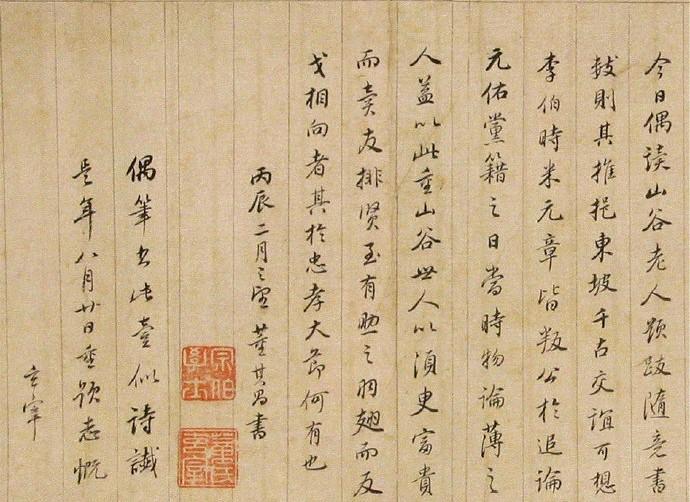 今日偶讀山谷老人題跋隨意書
數則其推挹東坡千古交誼可想
李伯時米元章皆叛公於追論
元佑黨籍之日當時物論薄之
人益以此重山谷世人以須臾富貴
而賣友排賢至有煦之羽翅而反
戈相向者其於忠孝大節何有也
丙辰二月之望董其昌書
宗伯學士
董氏玄宰
偶筆出此壹似詩讖
是年八月廿日重題志慨
玄宰